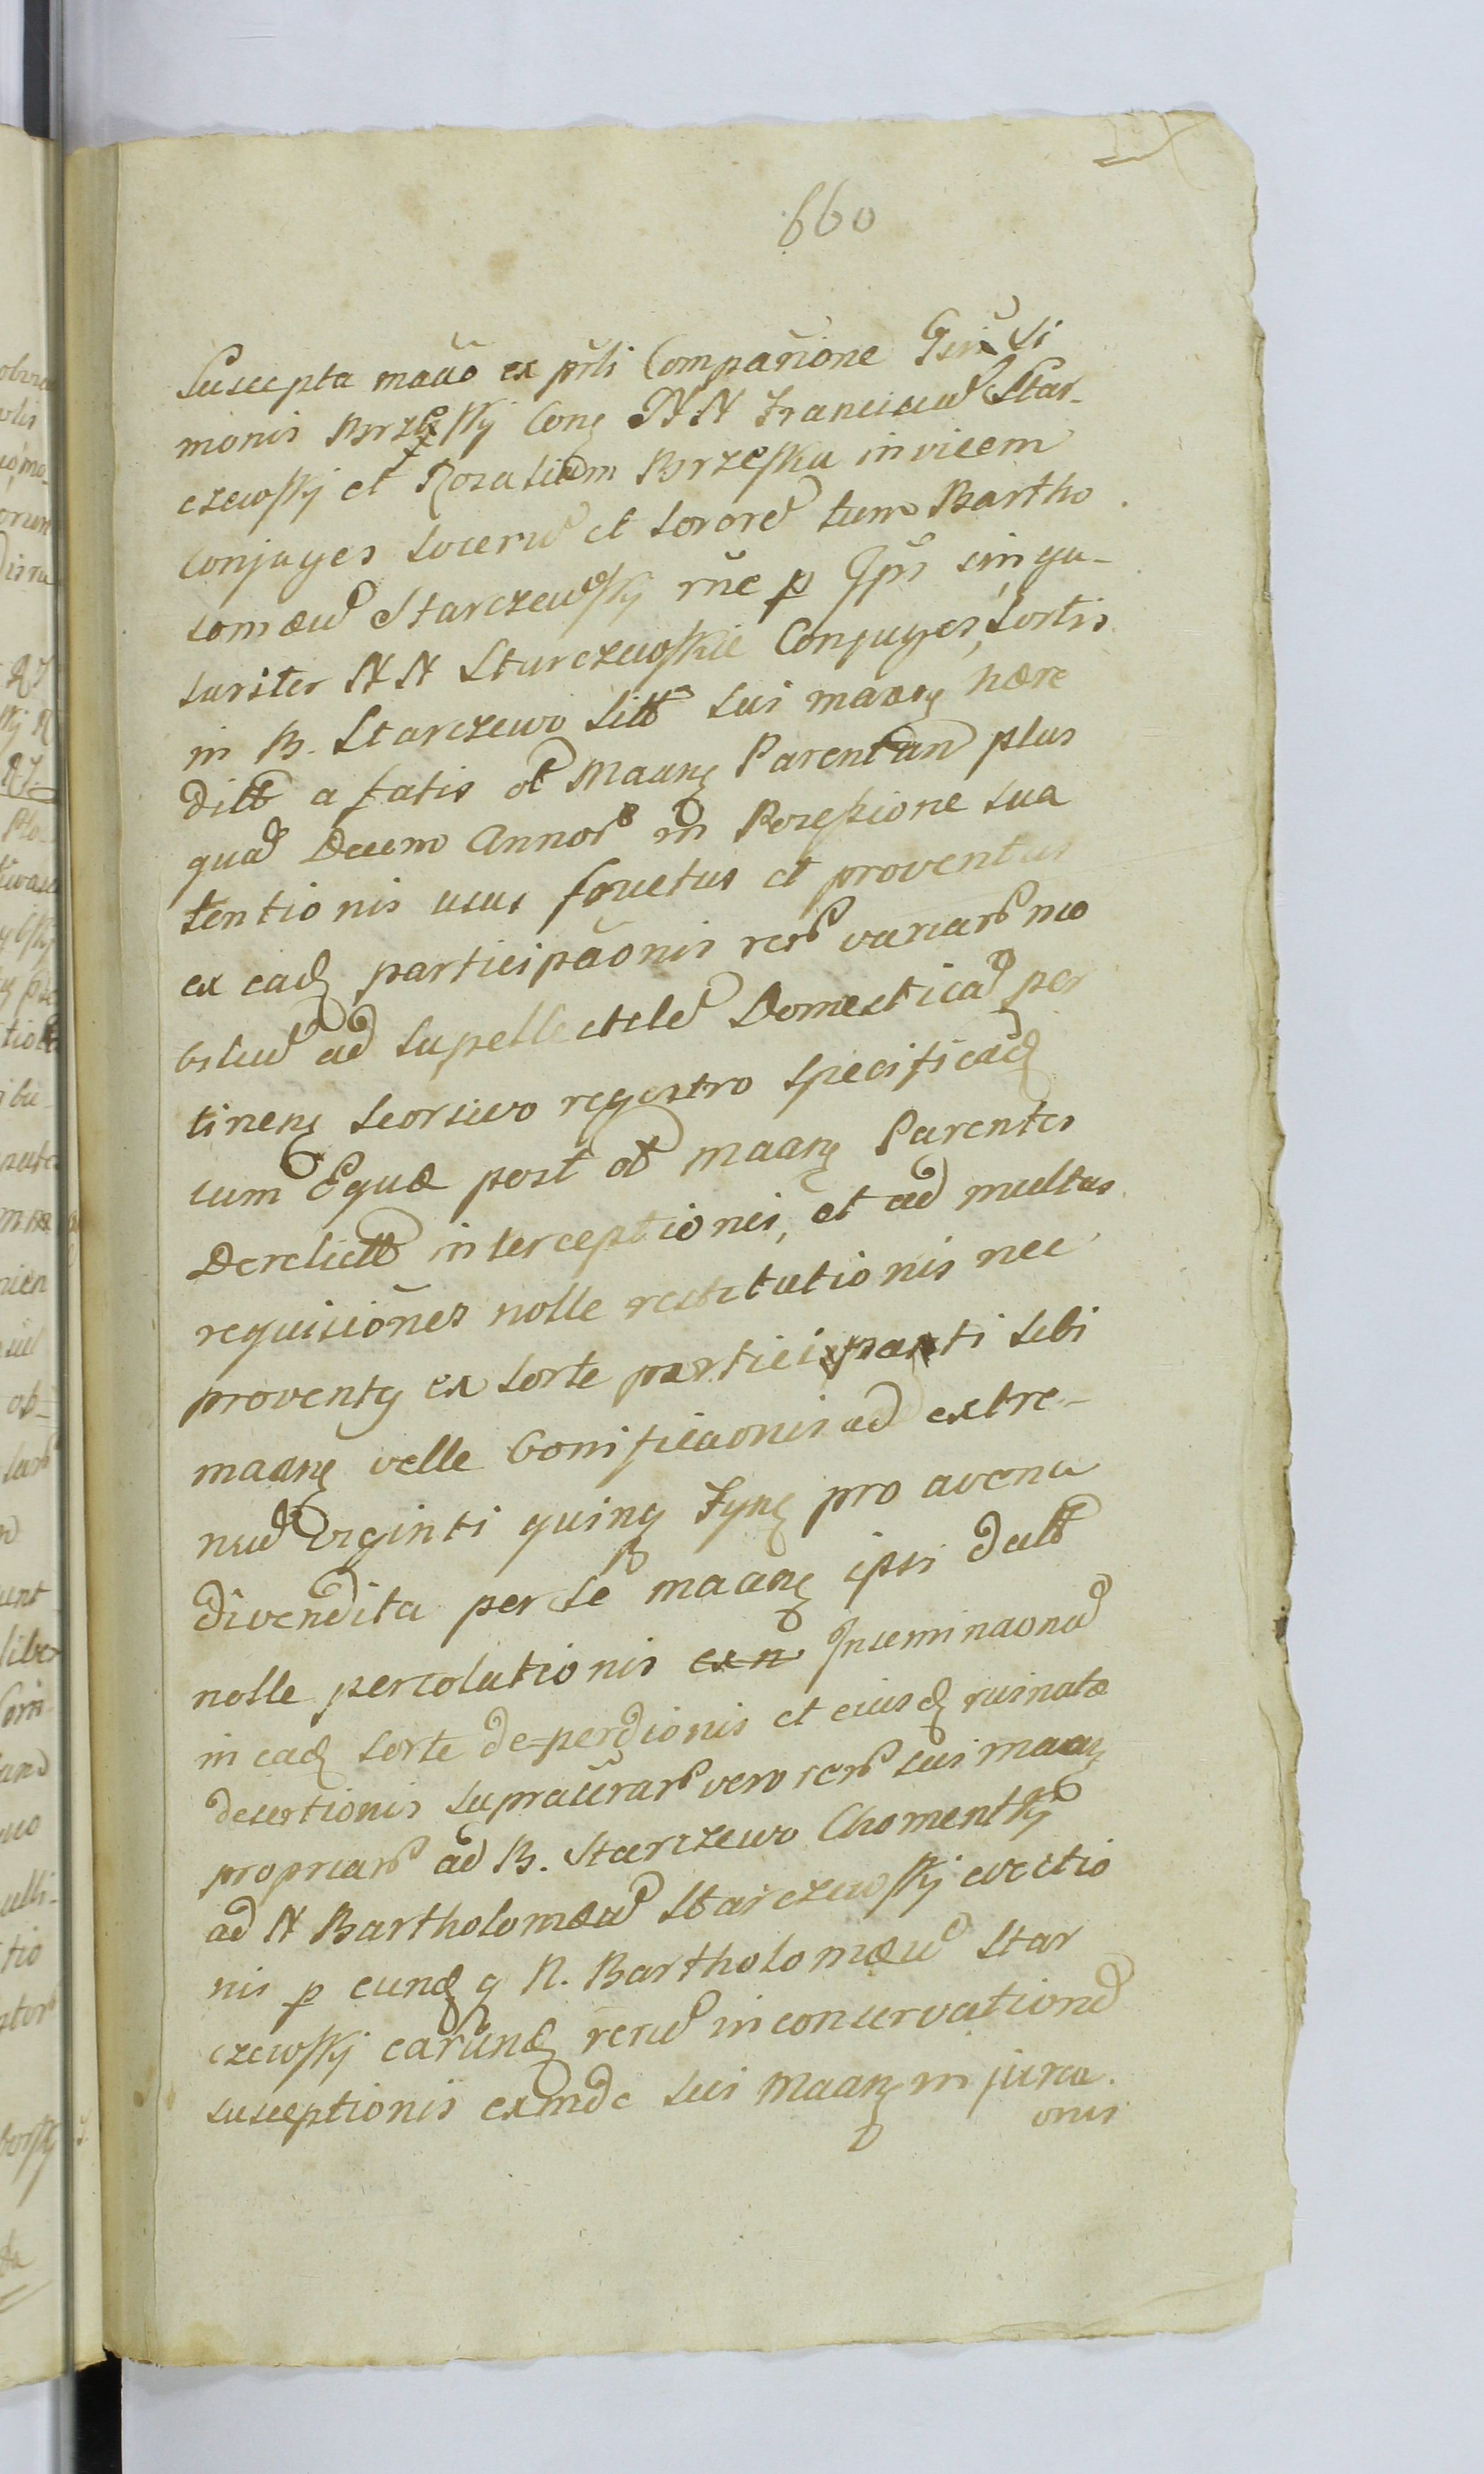 660
Suscepta maõ ex pñli Compariõne Gsi Si
monis Brzeskij Conq NN Franciscũ Star-
czewskij et Rosaliam Brzeska invicem
Conjuges Socerũ et Sororẽ tum Bartho
lomæũ Starczewskij rñe p Ipñ singu-
lariter NN Starczewskie Conjuges, Sortis
in B. Starczewo sitt sui maanq hære
ditt a fatis ol Maanq Parentum plus
quã Decem Annorũ in Possessione sua
tentionis usus fructus et proventus
ex eadq participãonis rerũ variarũ mo
biliũ ad supellectilẽ Domesticã per
tinenq seorsivo regestro specificadq
cum Equæ post ol maanq Parentes
Derelictt interceptionis, et ad multas
requisiõnes nolle restitutionis nec
proventq ex Sorte participanti sibi
maanq velle bonificaonis ad extre-
mũ viginti quinq Fynq pro avena
divendita per se maanq ipsi datt
nolle persolutionis ex n Inseminaonũ
in eadq sorte de=perdionis et eiusdq ruinatæ
desertionis supraũrarũ vero rerũ sui maanq
propriarũ ad B. Starczewo Chomentskj
ad N Bartholomæũ Starczewskij evectio
nis p eundq q N. Bartholomæũ Star
czewskij earũndq rerũ in conservationẽ
susceptionis exinde sui Maanq in jurea.
onis